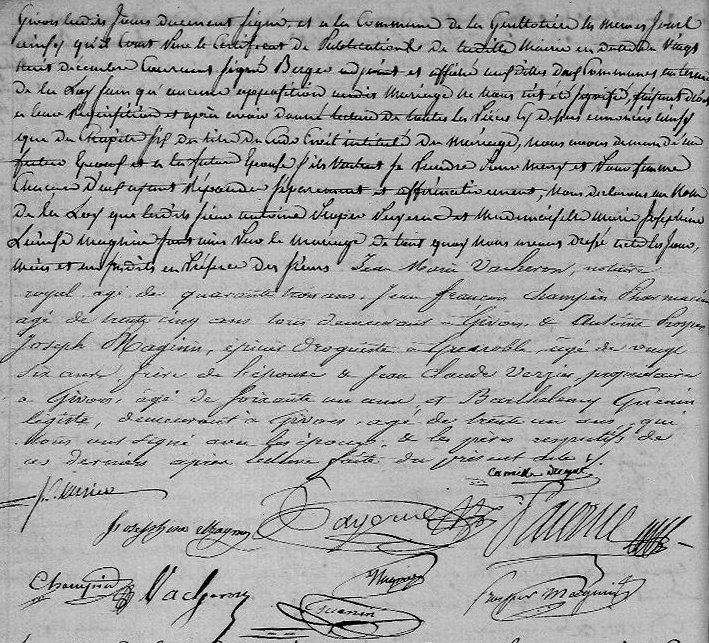 Givors lesdits jours ducement signé, et a la Commune de la Guillotière les memes jours
ainsy qu'il Conste Par le Certificat de Publication de laditte Mairie en datte du Vingt
huit décembre Courant Signé Berger adjoint et affiché auxdittes deux Communes en terme
de la Loy sans qu'aucune opposition audit Mariage ne nous ait été signifié, faisant droit
a leur Requisition et après avoir donné lecture de toutes les Pièces Cy dessus énoncées ainsy
que du Chapitre six du titre du Code Civil intitulé du Mariage, nous avons demandé au
futur Epoux et a la future Epouse s'ils veulent se Prendre Pour Mary et Pour femme
Chacun d'eux ayant Répondu séparément et affirmativement, Nous déclarons au Nom
de la Loy que lesdits sieur antoine et Mademoiselle Marie Joséphine
sont unis Par le Mariage de tout quoy Nous avons dressé acte les Jour,
mois et an susdits en Présence des sieurs Jean Marie Vacheron, notaire
royal, agé de quarante trois ans, Jean françois Champin Pharmacien
agé de trente cinq ans tous demeurant à Givors, & Antoine Prosper
Joseph Magnin, épicier droguiste à Grenoble, agé de vingt
six ans, frère de l'épouse & Jean Claude propriétaire
à Givors, agé de soixante un ans, et Barthelemy Guenin
légiste, demeurant à Givors, agé de trente un ans, qui
nous ont signé avec les époux, & les pères respectifs de
ces derniers après lecture faite du présent acte
Camille
Josephine Magnin
Champin Vacheron Magnin Prosper Magnin
Guenin